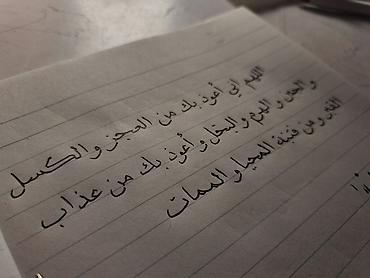 اللهم إني أعوذ بك من العجز والكسل
والجبن والهرم والبخل وأعوذ بك من عذاب
القبر ومن فتنة المحيا والممات